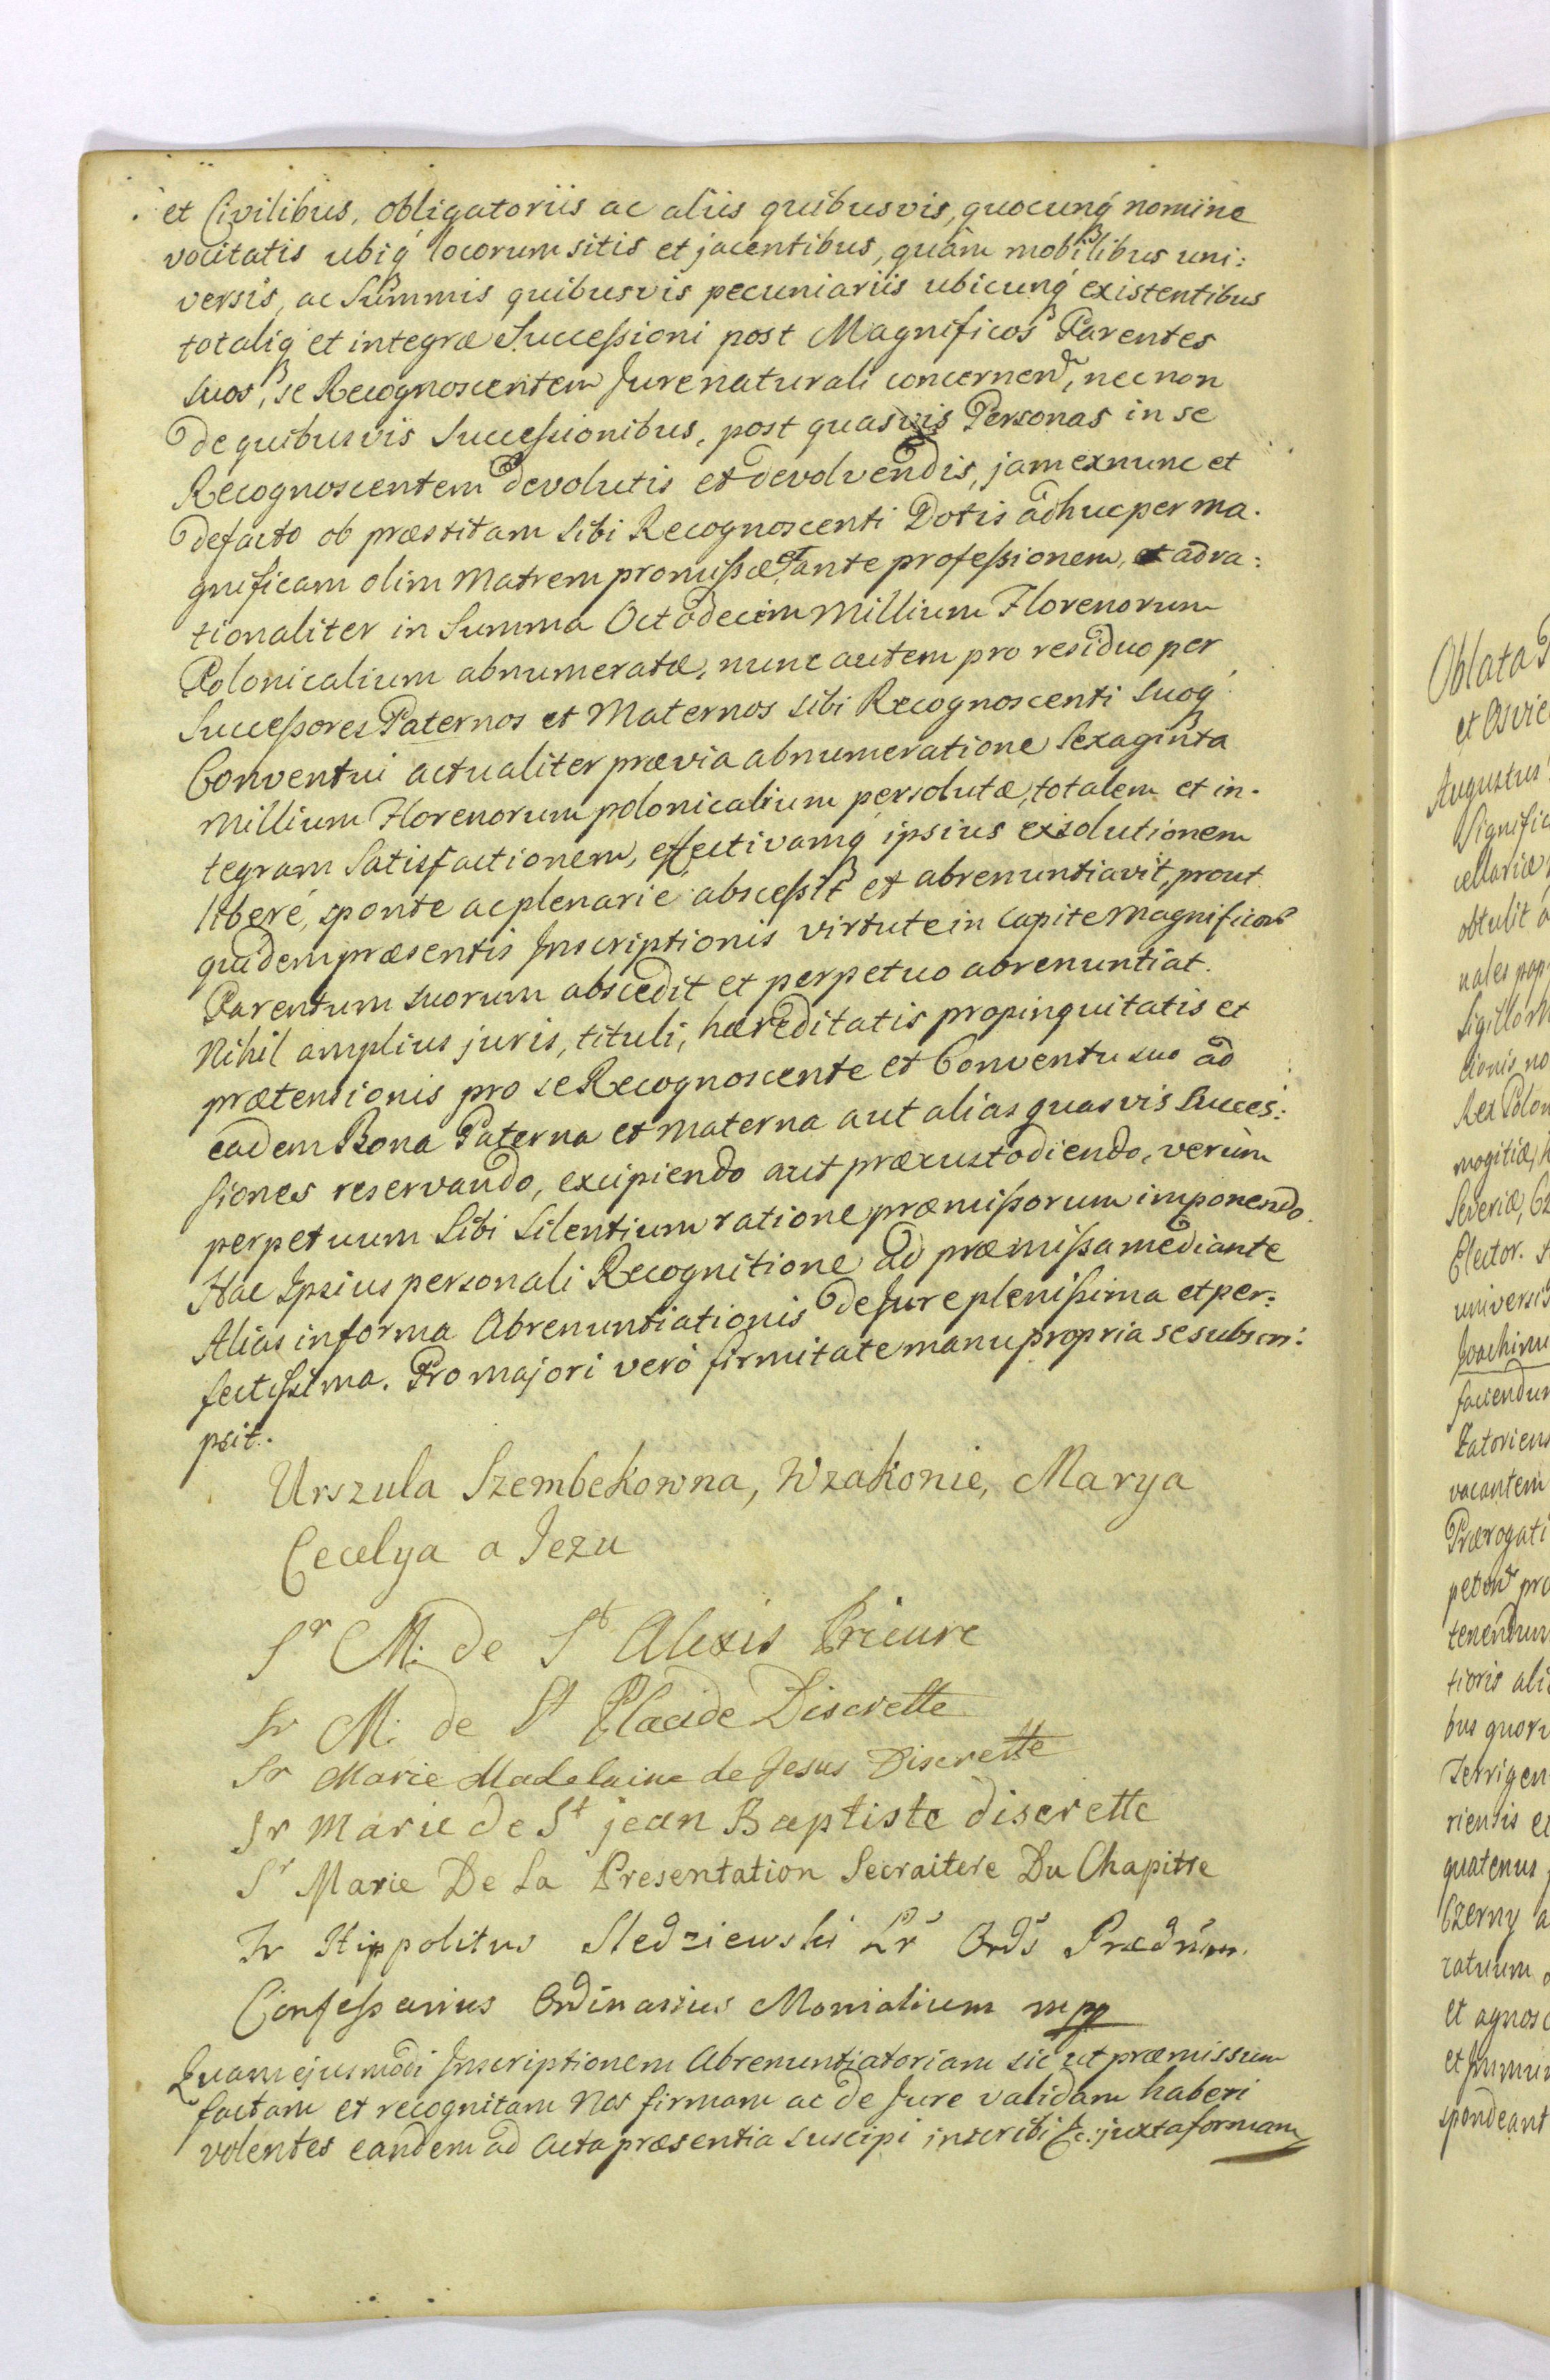 et Civilibus, obligatoriis ac aliis quibusvis, quocunq́ nomine
vocitatis ubiq́ locorum sitis et jacentibus, quàm mobilibus uni:
versis, ac Summis quibusvis pecuniariis ubicunq́ existentibus
totaliq́ et integræ Successioni post Magnificos Parentes
suos, se Recognoscentem Jure naturali concernen, nec non
de quibusvis Successionibus, post quasvis Personas in se
Recognoscentem devolutis et devolvendis, jam ex nunc et
de facto ob præstitam sibi Recognoscenti Dotis adhuc per ma.
gnificam olim Matrem promissæ, et ante professionem, ad ra:
tionaliter in Summa Octodecim Millium Florenorum
Polonicalium abnumeratæ, nunc autem pro residuo per
Successores Paternos et Maternos sibi Recognoscenti suoq́
Conventui actualiter prævia abnumeratione Sexaginta
Millium Florenorum polonicalium persolutæ, totalem et in.
tegram Satisfactionem, effectivamq́ ipsius exsolutionem
liberé, sponte ac plenarie abscessit et abrenuntiavit, prout
quidem præsentis Inscriptionis virtute in capite Magnificor
Parentum suorum abscedit et perpetuo abrenuntiat.
Nihil amplius juris, tituli, hæreditatis propinquitatis et
prætensionis pro se Recognoscente et Conventu suo ad
eadem Bona Paterna et Materna aut alias quasvis Succes:
siones reservando, excipiendo aut præcustodiendo, verùm
perpetuum Sibi Silentium ratione præmissorum imponendo.
Hac Ipsius personali Recognitione ad præmissa mediante
Alias in forma Abrenuntiationis de Jure plenissima et per:
fectissima. Pro majori verò firmitate manu propria se subscri:
psit.
Urszula Szembekowna, Wzakonie, Marya
Cecelya a Jezu
Sr M: de St Alexis Prieure
Sr M: de St Placide Discrette
Sr Marie Madelaine de Jesus Discrette
Sr Marie de St jean Baptiste discrette
Sr Marie De La Presentation Secraitere Du Chapitre
Fr Hippolitus Sledziewski Lr Ords Prædrum.
Confessarius Ordinarius Monialium mpp
Quam ejusmodi Inscriptionem Abrenuntiatoriam sic ut præmissum
factam et recognitam Nos firmam ac de Jure validam haberi
volentes eandem ad Acta præsentia suscipi inscribi &c: juxta formam
Oblata
et Osvie
Augustus
Signific
cellariæ
obtulit
nales pap
Sigillo
tionis no
Rex Polon
mogitiæ,
Severiæ, Cz
Elector.
universis
Joachimu
faciendum
Zatoriens
vacantem
Prærogati
pro
tenendum
tioris ali
bus quor
Terrigen
riensis e
quatenus
Czerny a
ratuum
et agnosc
spondeant